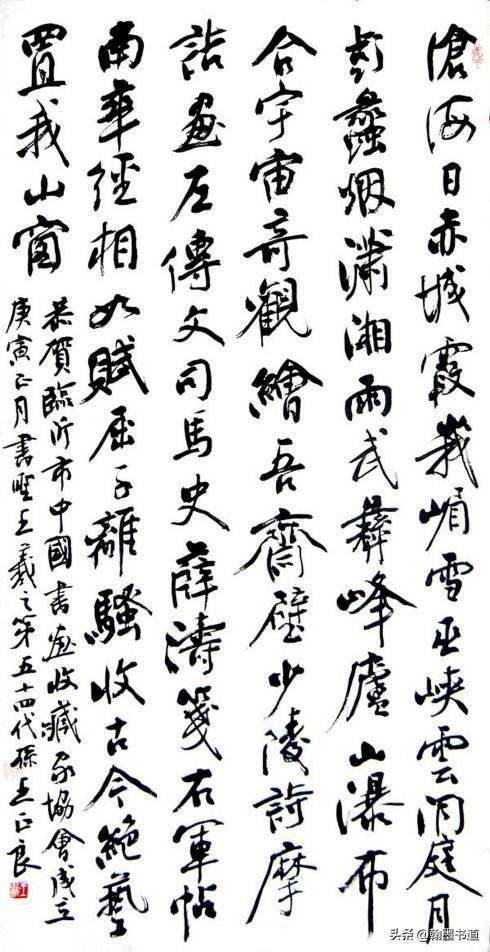 滄海日赤城霞峩嵋雪巫峽雲洞庭月
彭蠡烟瀟湘雨武彝峰廬山瀑布
合宇宙奇觀繪吾齋壁少陵詩摩
詰畫左傳文司馬史薛濤箋右軍帖
南華經相如賦屈子離騷收古今絶藝
置我山窗
恭賀臨沂市中國書畫收藏家協會成立
庚寅正月書聖王羲之第五十四代孫王正良
头条 @翰墨书道